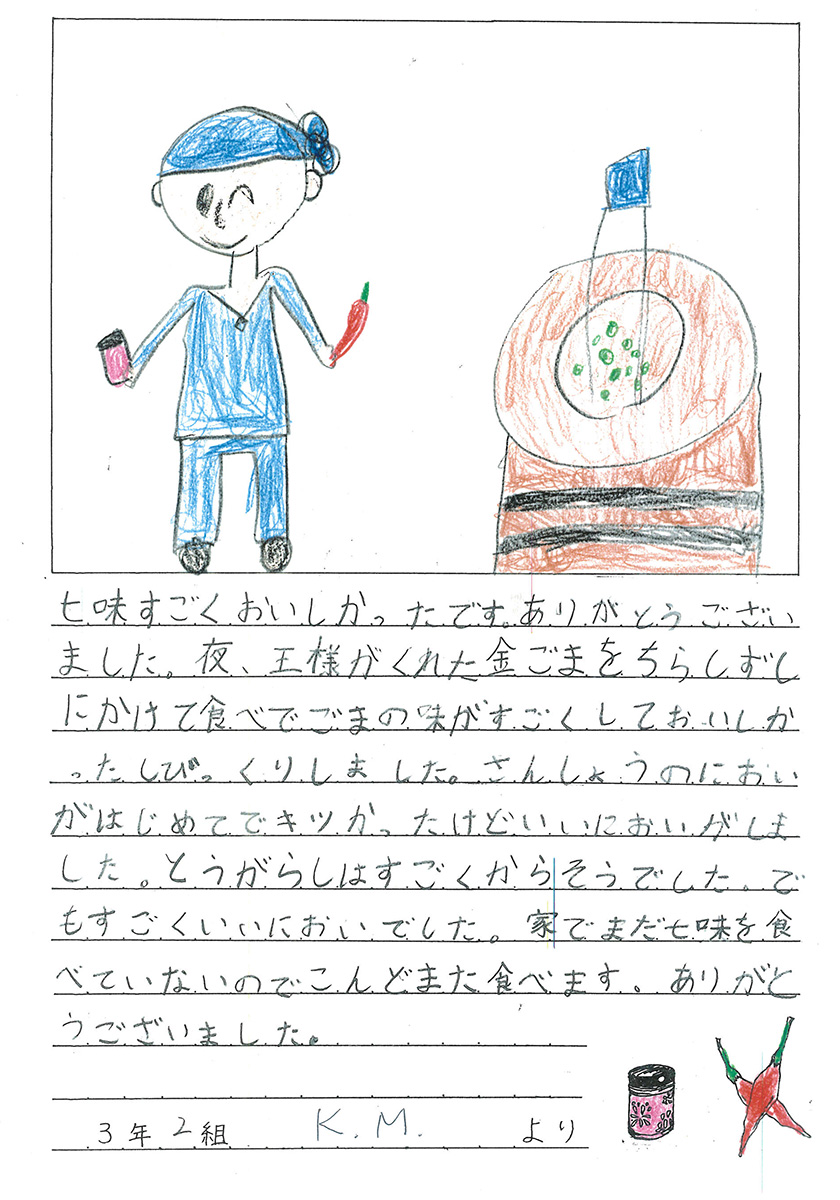 七味すごくおいしかったです。ありがとうござい
ました。夜、王様がくれた金ごまをちらしずし
にかけて食べでごまの味がすごくしておいしか
ったしびっくりしました。さんしょうのにおい
がはじめてでキツかったけどいいにおいがしま
した。とうがらしはすごくからそうでした。で
もすごくいいにおいでした。家でまだ七味を食
べていないのでこんどまた食べます。ありがと
うございました。
3年2組 K.M. より